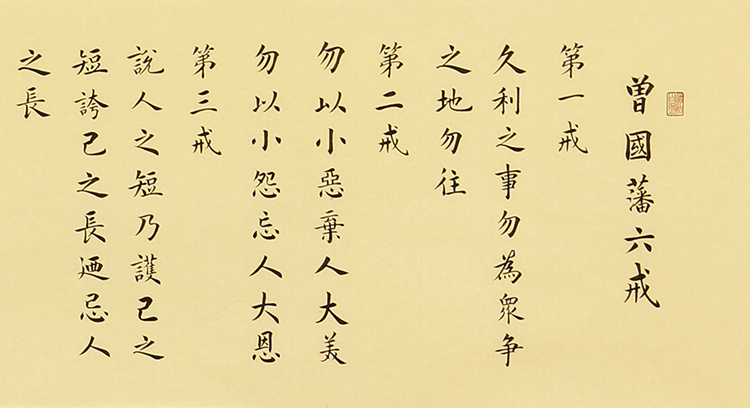 曾國藩六戒
第一戒
久利之事勿為眾争
之地勿往
第二戒
勿以小惡棄人大美
勿以小怨忘人大恩
第三戒
說人之短乃護己之
短誇己之長迺忌人
之長